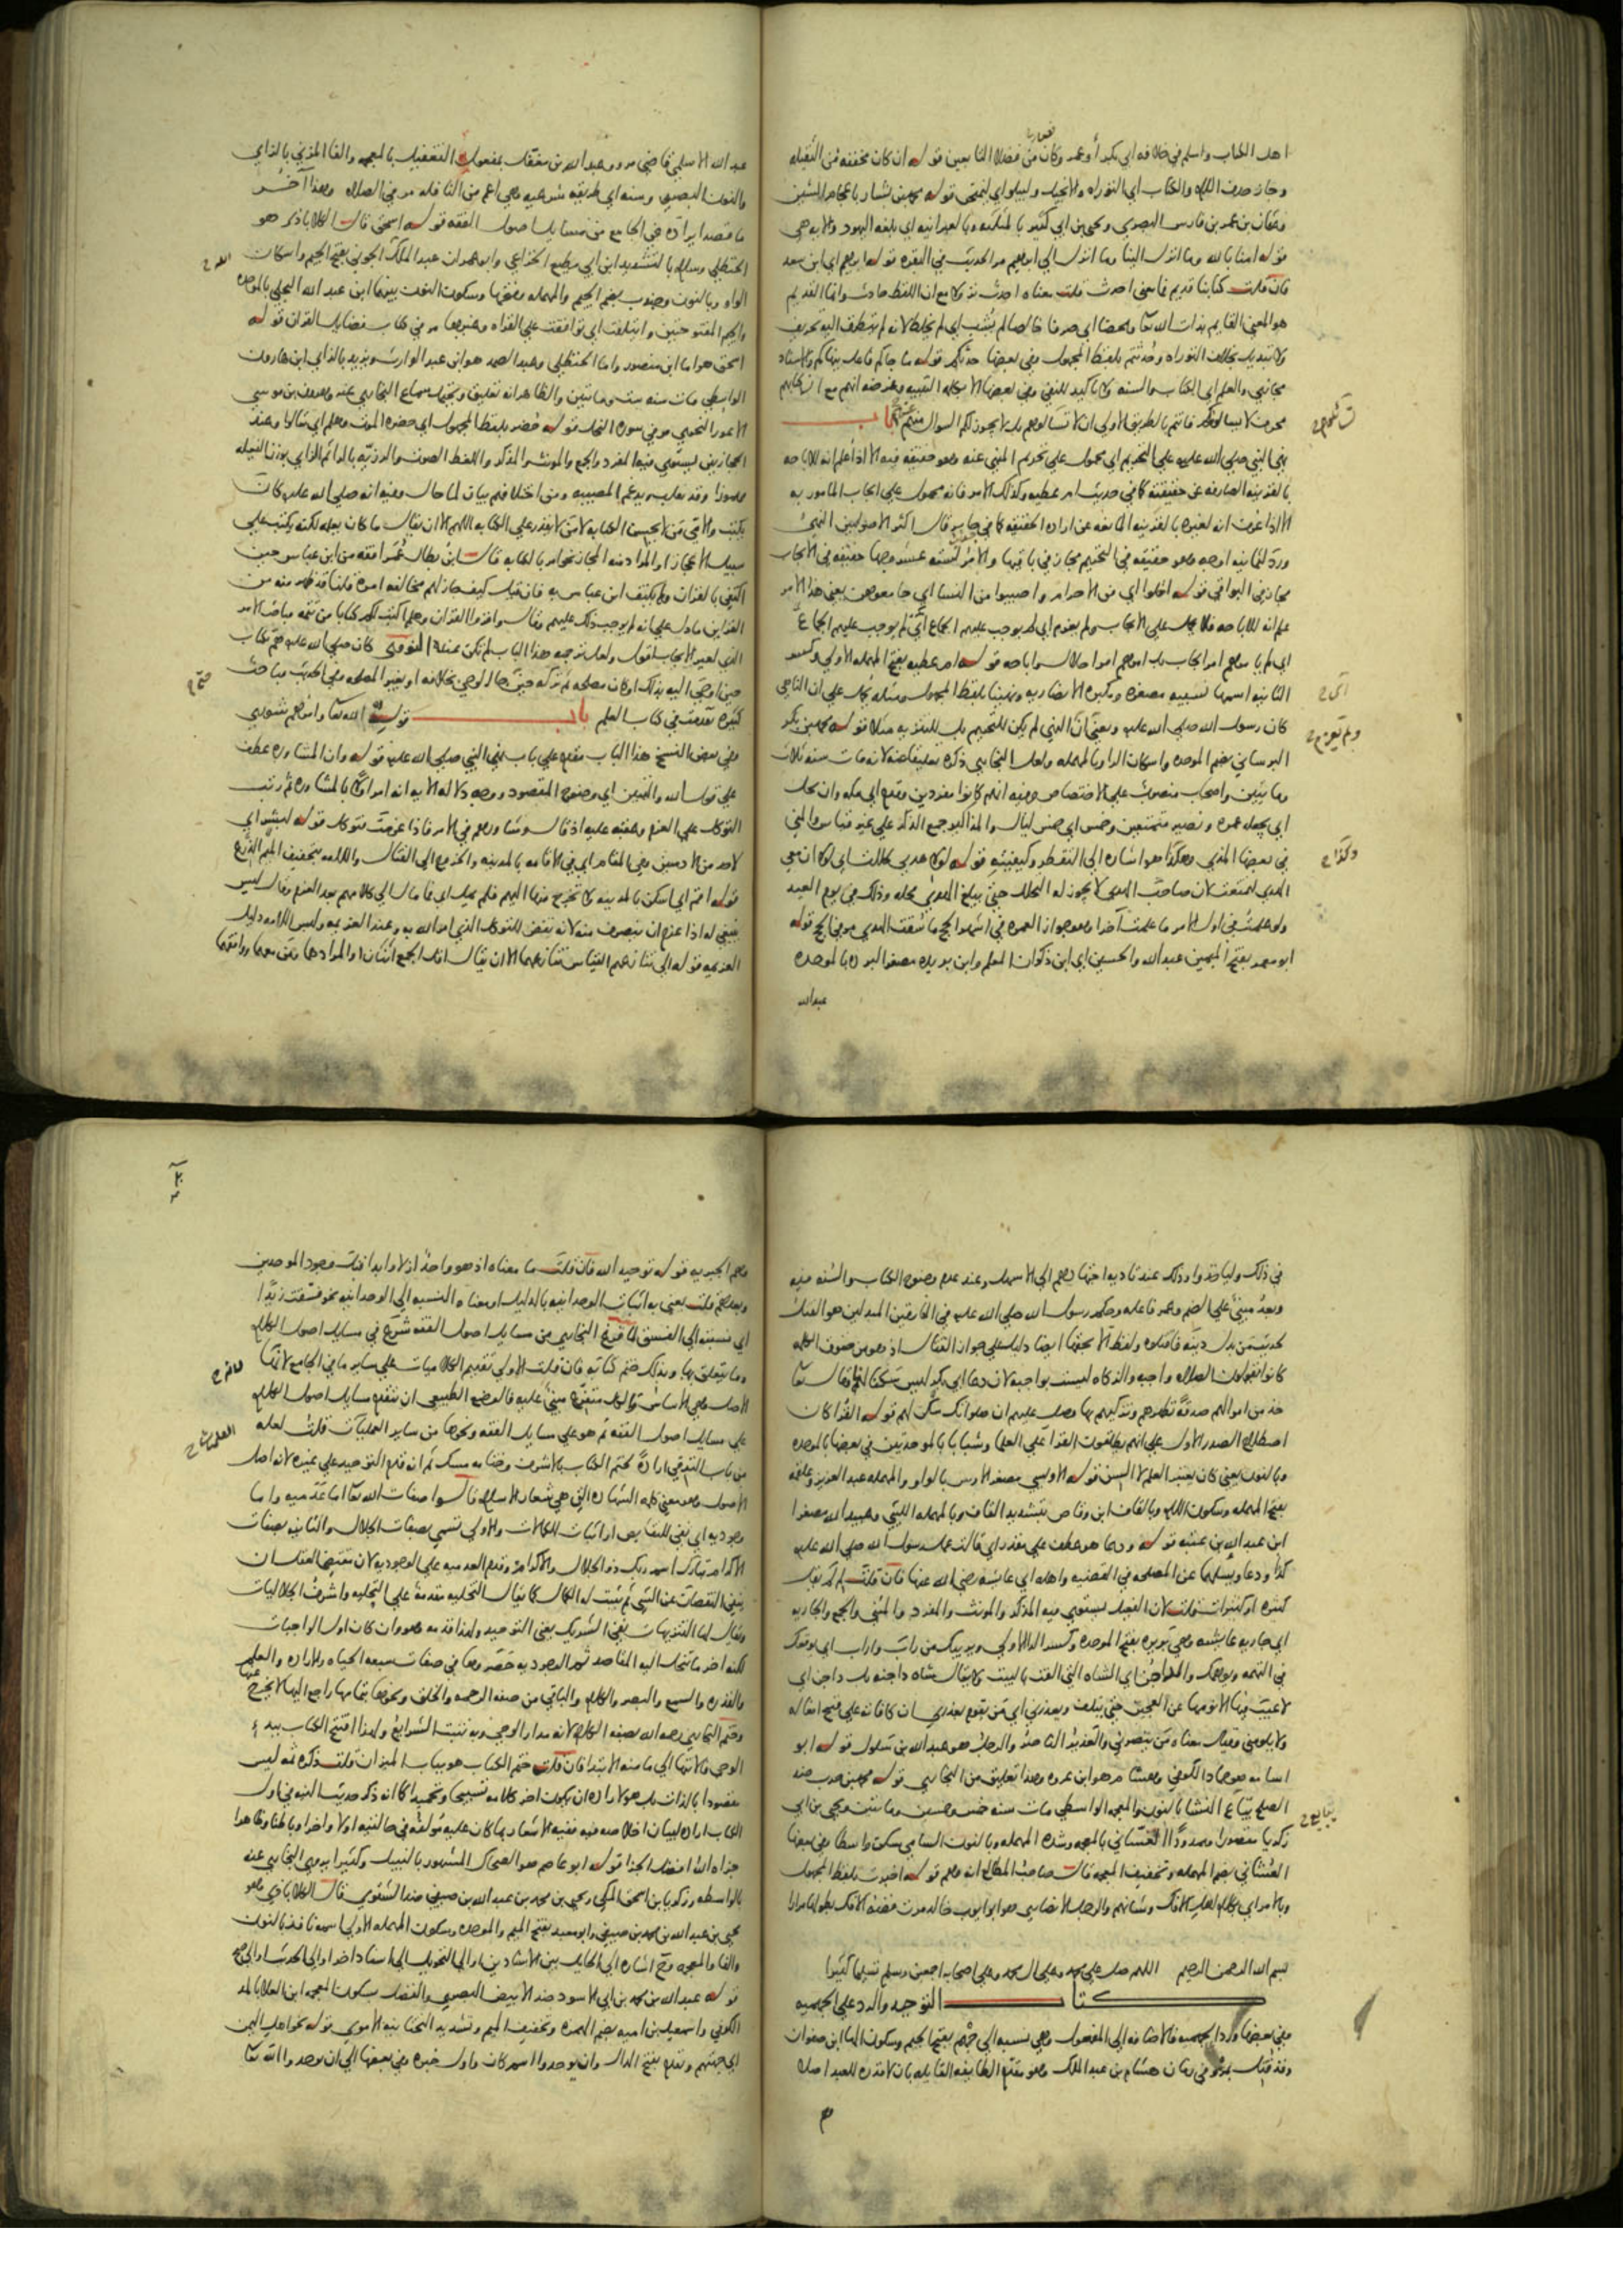 اهل الكتاب واسلم في خلافة ابي بكر أو عمر وكان من فضلاء التابعين قوله ان كان مخففة من الثقيلة
وجاز حذف اللام والكتاب اي التوراة والانجيل ولنبلو اي لنمتحن قوله محمد بن بشار باعجام الشين
وعثمان بن عمر بن فارس البصري ويحيى بن ابي كثير بالمثلثة وبالعبرانية اي بلغة اليهود والآية هي
قوله امنا بالله وما انزل الينا وما انزل الى ابراهيم مر الحديث في البقرة قوله ابراهيم اي ابن سعد
فان قلت كتابنا قديم فما معنى احدث قلت معناه احدث نزولا مع ان اللفظ حادث وانما القديم
هو المعنى القايم بذات الله تعا ومحضا اي صرفا خالصا لم يُشَب اي لم يخلط لانه لم يتطرق اليه تحريف
ولا تبديل بخلاف التوراة وحدثتم بلفظ المجهول وفي بعضها حدثكم قوله ما جاكم فاعل ينهاكم والاسناد
مجازي والعلم اي الكتاب والسنة ولا تاكيد للنفي وفي بعضها الا بكلمة التنبيه وغرضه انهم مع ان كتابهم
محرف لا يسالونكم فانتم بالطريق الاولى ان لا تسالوهم بل لا يجوز لكم السوال منهم باب
نهي النبي صلى الله عليه على التحريم اي محمول على تحريم المنهي عنه وهو حقيقة فيه الا اذا علم انه للاباحه
بالقرينة الصارفة عن حقيقته كما في حديث ام عطية وكذلك الامر فانه محمول على ايجاب المامور به
الا اذا عرفت انه لغيره بالقرينة المانعة عن ارادة الحقيقة كما في جابر قال اكثر الاصوليين النهي
ورد لثمانية اوجه وهو حقيقة في التحريم مجاز في باقيها والامر لستة عشر وجها حقيقة في الايجاب
مجاز في البواقي قوله احلوا اي من الاحرام واصيبوا من النسا اي جامعوهن يعني هذا الامر
علم انه للاباحه فلا يحمل على الايجاب ولم يعزم اي لم يوجب عليهم الجماع اي لم يوجب عليهم الجماع
اي لم يامرهم امر ايجاب بل امرهم امر احلال واباحه قوله ام عطية بفتح المهملة الاولى وكسر
الثانية اسمها نسيبة مصغرة ومكبرة الانصارية ونهينا بلفظ المجهول ومثله يحمل على ان الناهي
كان رسول الله صلى الله عليه ويعني ان النهي لم يكن للتحريم بل للتنزيه مثلا قوله محمد بن بكر
البرساني بضم الموحدة واسكان الرا وبالمهملة ولعل البخاري ذكره تعليقا عنه لانه مات سنة ثلاث
ومايتين واصحاب منصوب على الاختصاص وفيه انهم كانوا مفردين وقدم اي مكة وان نحل
اي يجعله عمرة ونصير متمتعين وخمس اي خمس ليال والمذاكير جمع الذكر على غير قياس والمني
في بعضها المذي وهكذا هو اشارة الى التقطر وكيفيته قوله لولا هديي لحللت اي لولا ان معي
الهدي لتمتعت لان صاحب الهدي لا يجوز له التحلل حتى يبلغ الهدي محله وذلك في يوم العيد
ولو علمت في اول الامر ما علمت آخرا وهو جواز العمرة في اشهر الحج ما سقت الهدي مر في الحج قوله
ابو معمر بفتح الميمين عبد الله والحسين اي ابن ذكوان المعلم وابن بريده مصغر البردة بالموحدة
عبد الله
عبد الله الاسلمي قاضي مرو وعبد الله بن مغفل بمفعول التغفيل بالمعجمة والفا المزني بالزاي
والنون البصري وسنة اي طريقة شرعية وهي اعم من النافلة مر في الصلاة وهذا آخر
ما قصد ايراده في الجامع من مسايل اصول الفقه قوله اسحق قال الكلاباذي هو
الحنظلي وسلام بالتشديد ابن ابي مطيع الخزاعي وابو عمران عبد الملك الجوني بفتح الجيم واسكان
الواو وبالنون وجندب بضم الجيم والمهملة وفتحها وسكون النون بينهما ابن عبد الله البجلي بالموحدة
والجيم المفتوحتين وايتلفت اي توافقت على القراة وغيرها مر في كتاب فضايل القران قوله
اسحق هو اما ابن منصور واما الحنظلي وعبد الصمد هو ابن عبد الوارث ويزيد بالزاي ابن هارون
الواسطي مات سنة ست ومايتين والظاهر انه تعليق ويحتمل سماع البخاري عنه وهارون بن موسى
الاعور النحوي مر في سورة النحل قوله حضر بلفظ المجهول اي حضره الموت وهلم اي تعالوا وعند
الحجازيين يستوي فيه المفرد والجمع والمونث والمذكر واللغط الصوت والرزية بالرا ثم الزاي
سبيل الاعجاز او المراد منه المجاز نحو امر بالكتابة قال ابن بطال عُمر افقه من ابن عباس حين
اكتفى بالقران ولم يكتف ابن عباس به فان قيل كيف جاز لهم مخالفة امره قلنا قد ظهر منه من
القراين ما دل على انه لم يوجب ذلك عليهم
كثيرة تقدمت في كتاب العلم باب قول الله تعا وامرهم شورى
وفي بعض النسخ هذا الباب مقدم على باب نهي النبي صلى الله عليه قوله وان المشاورة عطف
على قول الله والتبين اي وضوح المقصود ووجه دلالة الاية انه امر اولا بالمشاورة ثم رتب
التوكل على العزم وعقبه عليه اذ قال وشاورهم في الامر فاذا عزمت فتوكل قوله لبشر اي
لاحد من الادميين وفي المقام اي في الاقامة بالمدينة والخروج الى القتال واللامة بتخفيف الميم الدرع
قوله اقم اي اسكن بالمدينة ولا تخرج منها اليهم فلم يمل اي فما مال الى كلامهم بعد العزم وقال ليس
ينبغي له اذا عزم ان ينصرف منه لانه نقض للتوكل الذي امر الله به وعند العزيمة ولبس اللامة دليل
العزيمة قوله الى تنازعهم القياس تنازعهما الا ان يقال اقل الجمع اثنان او المراد هما ومن معهما ووافقهما
في ذلك
وبعدُ مبني على الضم وعمر فاعله وحكم رسول الله صلى الله عليه في الفارقين المبدلين هو القتل
لحديث من بدل دينه فاقتلوه ولفظ الا بحقها ايضا دليل على جواز القتال
كانوا يقولون الصلاة واجبة والزكاة ليست بواجبة لان دعا ابي بكر ليس سكنا لهم وقال تعا
خذ من اموالهم صدقةً تطهرهم وتزكيهم بها وصل عليهم ان صلواتك سكن لهم قوله القرا كان
اصطلاح الصدر الاول على انهم يطلقون القرا على العلما وشبابا بالموحدتين في بعضها بالموحدة
وبالنون يعني كان يعتبر العلم لا السن قوله الاويسي مصغر الاوس بالواو والمهملة عبد العزيز وعلقمة
بفتح المهملة وسكون اللام وبالقاف ابن وقاص بتشديد القاف وبالمهملة الليثي وعبيد الله مصغرا
ابن عبد الله بن عتبة قوله ودعا هو عطف على مقدر اي قالت عملت رسول الله صلى الله عليه
كذا ودعا ويسلهما عن المصلحة في القضية واهله اي عائشة رضي الله عنها فان قلت لم لم يقل
كثيرة او كثيرات قلت لان الفعيل يستوي فيه المذكر والمونث والمفرد والمثنى والجمع والجارية
اي جارية عايشة وهي بريرة بفتح الموحدة وكسر الرا الاولى ويريبك من راب واراب اي يوقعك
في التهمة ويوهمك والداجن اي الشاة التي الفت بالبيت ولا يقال شاة داجنة بل داجن اي
لا عيب فيها الا نومها عن العجين حتى يتلف ويعذرني اي من يقوم بعذري ان كافاته على قبح افعاله
ولا يلومني وقيل معناه من ينصرني والعذير الناصر والرجل هو عبد الله بن سلول قوله ابو
اسامة هو حماد الكوفي وهشام هو ابن عروة وهذا تعليق من البخاري قوله محمد بن حرب ضد
الصلح بياع النشا بالنون والمعجمة الواسطي مات سنة خمس وخمسين ومايتين ويحيى بن ابي
زكريا مقصورا وممدودا الغساني بالمعجمة وشدة المهملة وبالنون الشامي سكن واسطا وفي بعضها
العشاني بضم المهملة وتخفيف المعجمة قال صاحب المطالع انه وهم قوله اخبرت بلفظ المجهول
وبالامر اي بكلام اهل الافك وشانهم والرجل الانصاري هو ابو ايوب خالد مرت قصة الافك بطولها مرارا
بسم الله الرحمن الرحيم اللهم صل على محمد وعلى ال محمد وعلى اصحابه اجمعين وسلم تسليما كثيرا
كتاب التوحيد والرد على الجهمية
وفي بعضها ورد الجهمية فالاضافة الى المفعول وهي نسبة الى جهم بفتح الجيم وسكون الها ابن صفوان
وقد قتل بمرو في زمان هشام بن عبد الملك وهو مقدم الطايفة القايلة بان لا قدرة للعبد اصلا
وهم الجبرية قوله توحيد الله فان قلت ما معناه اذ هو واحد ازلا وابدا قبل وجود الموحدين
وبعدهم قلت يعني به اثبات الوحدانية بالدليل او معناه النسبة الى الوحدانية نحو فسقت زيدا
اي نسبته الى الفسق لما فرغ البخاري من مسايل اصول الفقه شرع في مسايل اصول الكلام
وما يتعلق بها وبذلك ختم كتابه فان قلت الاولى تقديم الكلاميات على ساير ما في الجامع لانها
الاصل وهي الاساس والكل متفرع مبني عليه فالوضع الطبيعي ان تقدم مسايل اصول الكلام
على مسايل اصول الفقه ثم هو على مسايل الفقه ونحوها من ساير العمليات قلت لعله
من باب الترقي ارادة لختم الكتاب بالاشرف وختامه مسك ثم انه قدم التوحيد على غيره لانه اصل
الاصول وهو معنى كلمة الشهادة التي هي شعار الاسلام قالوا صفات الله تعا اما عدمية واما
وجودية اي نفي للنقايص او اثبات للكمالات والاولى تسمى بصفات الجلال والثانية بصفات
الاكرام تبارك اسم ربك ذو الجلال والاكرام وقدم العدمية على الوجودية لان مقتضى العقل ان
ينفي النقصان عن الشي ثم يثبت له الكمال كما يقال التخلية مقدمة على التحلية واشرف الجلاليات
ويقال لها التنزيهات نفي الشريك يعني التوحيد ولهذا قدمه وهو وان كان اول الواجبات
لكنه اخر ما تنحل اليه المقاصد ثم الوجودية حصروها في صفات سبعة الحياة والارادة والعلم
والقدرة والسمع والبصر والكلام والباقي من صفة الرحمة والخلق ونحوها بتمامها راجع اليها لا يخرج عنها
وختم البخاري رحمه الله بصفة الكلام لانه مدار الوحي وبه تثبت الشرايع ولهذا افتتح الكتاب ببدء
الوحي فالانتها الى ما منه الابتدا فان قلت ختم الكتاب هو بباب الميزان قلت ذكره ثمة ليس
مقصودا بالذات بل هو لارادة ان يكون اخر كلامه تسبيحا وتحميدا كما انه ذكر حديث النية في اول
الكتاب ارادة لبيان اخلاصه فيه ففيه الاشعار بما كان عليه مؤلفه في حالتيه اولا واخرا وباطنا وظاهرا
جزاه الله افضل الجزا قوله ابو عاصم هو الضحاك المشهور بالنبيل وكثيرا يروي البخاري عنه
بالواسطة وزكريا بن اسحق المكي ويحيى بن محمد بن عبد الله بن صيفي ضد الشتوي قال الكلاباذي هو
يحيى بن عبد الله بن محمد بن صيفي وابو معبد بفتح الميم والموحدة وسكون المهملة الاولى اسمه نافذ بالنون
والفا والمعجمة وح اشارة الى الحايل بين الاسنادين او الى التحويل الى اسناد اخر او الى الحديث او الى صح
قوله عبد الله بن محمد بن ابي الاسود ضد الابيض البصري والفضل بسكون المعجمة ابن العلا بالمد
الكوفي واسمعيل بن امية بضم الهمزة وتخفيف الميم وتشديد التحتانية الاموي قوله نحو اهل اليمن
اي جهتهم وتقدم بفتح الدال وان يوحدوا اسم كان واول خبره وفي بعضها الى ان يوحدوا الله تعا